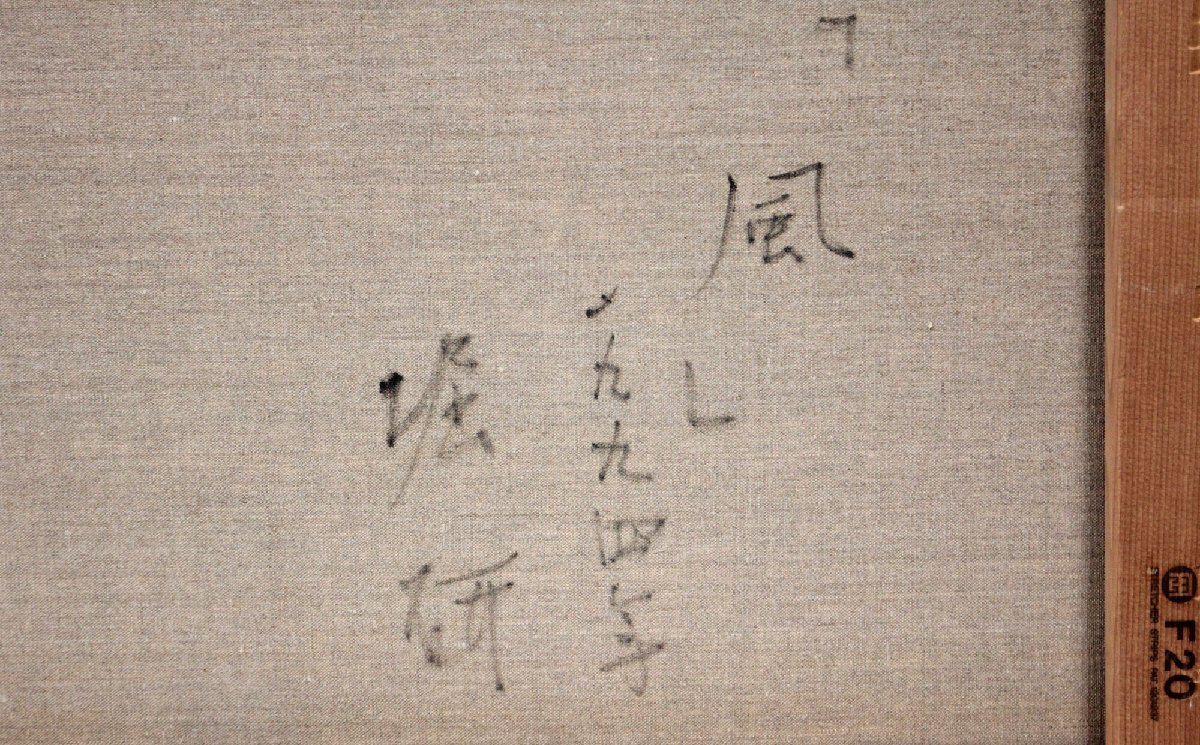 「風」
一九九四年
堀研
F20